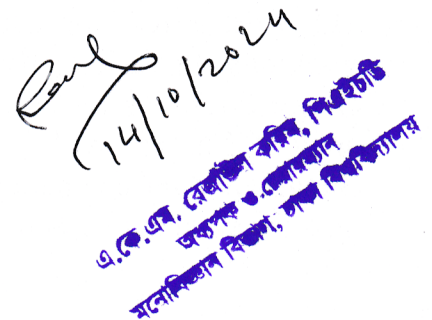 14/10/2024
এ.কে.এম. রেজাউল করিম, পিএইচডি
অধ্যাপক ও চেয়ারম্যান
মনোবিজ্ঞান বিভাগ, ঢাকা বিশ্ববিদ্যালয়